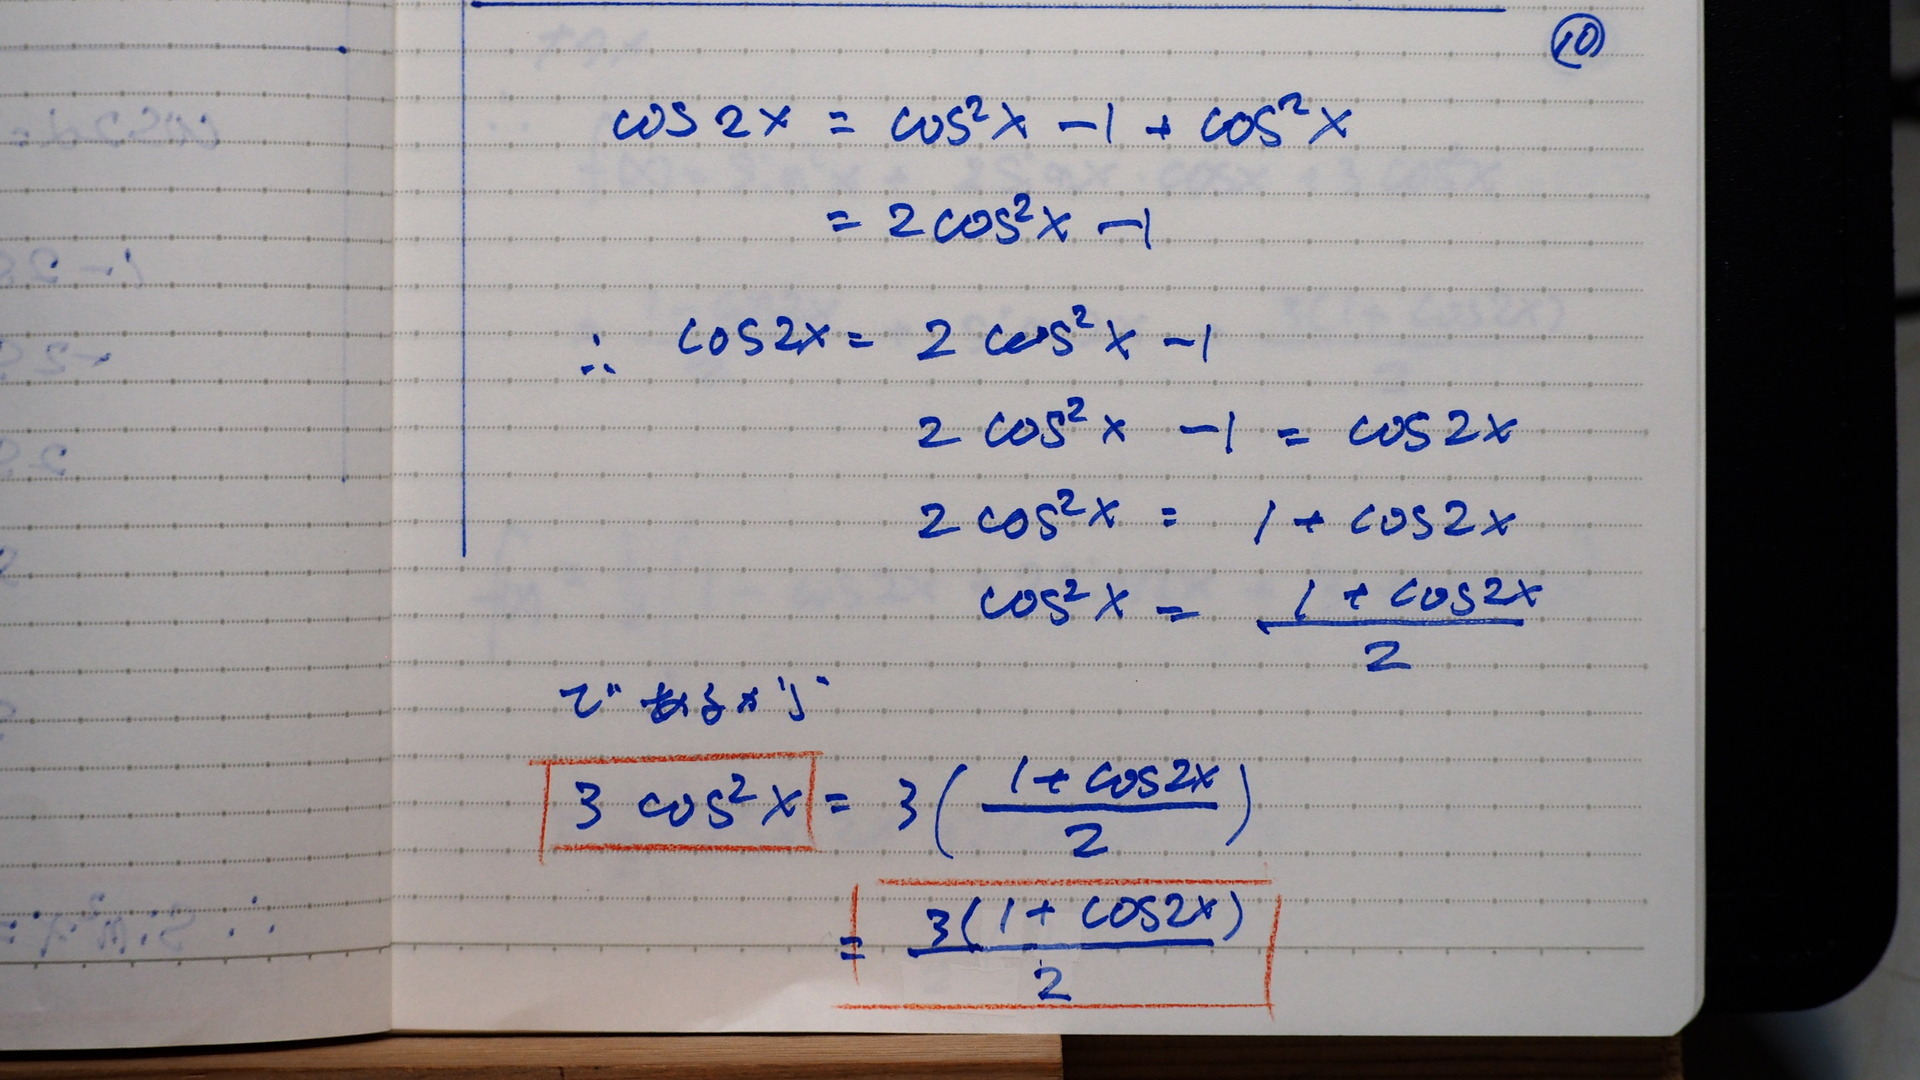 ⑩
cos 2x = cos²x - 1 + cos²x
= 2cos²x - 1
∴ cos2x = 2 cos²x - 1
2 cos²x - 1 = cos2x
2 cos²x = 1 + cos2x
cos²x = (1 + cos2x)/2
3 cos²x = 3((1 + cos2x)/2)
= 3(1 + cos2x)/2